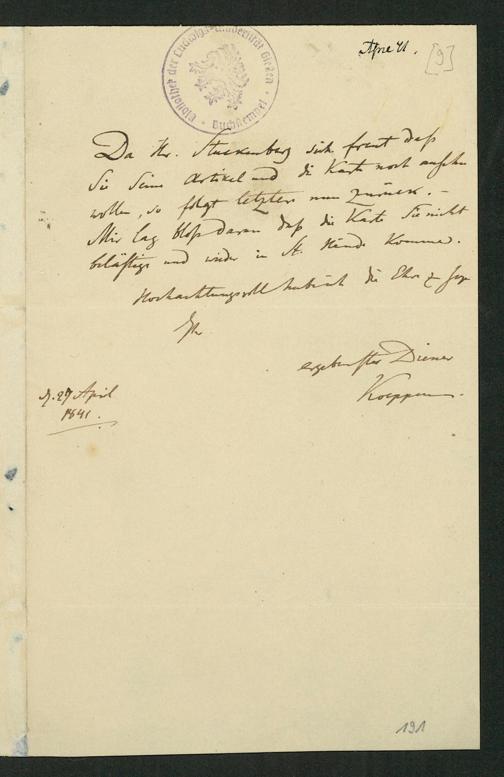 Apr. 41.
[9]
Bibliothek der Ludwigs-Universität Gießen
Buchstempel
Da Hr. Stuckenberg sich freut daß
Sie seine Artikel und die Karte noch ansehn
wollen, so folgt letztere nun zurück. –
Mir lag bloß daran daß die Karte Sie nicht
belästige und wieder in St. Hände komme.
Hochachtungsvoll habe ich die Ehre zu seyn
Ihr
ergebenster Diener
Koeppen.
d. 27 April
1841.
191